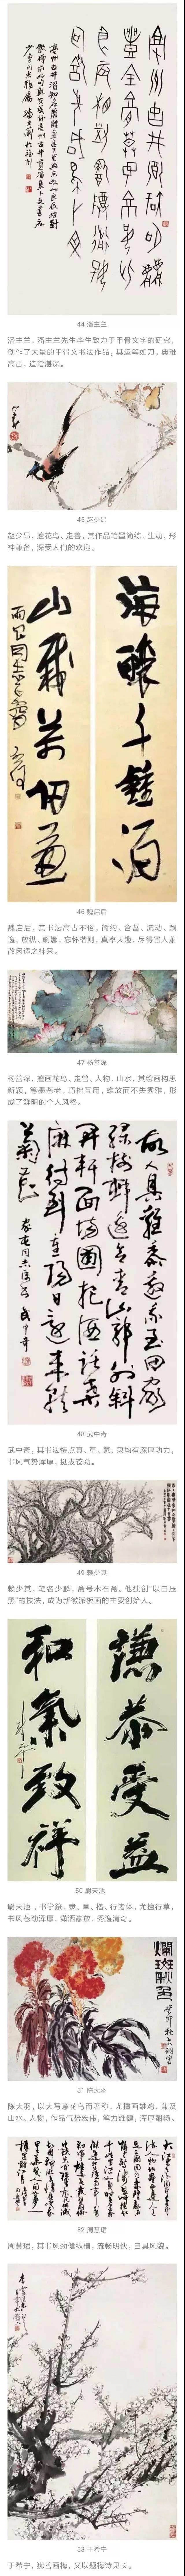 44 潘主兰
潘主兰，潘主兰先生毕生致力于甲骨文字的研究、
创作了大量的甲骨文书法作品，其运笔如刀，典雅
高古，造诣湛深。
45 赵少昂
赵少昂，擅花鸟、走兽，其作品笔墨简练、生动，形
神兼备，深受人们的欢迎。
海酿千钟酒
山栽万仞葱
46 魏启后
魏启后，其书法高古不俗，简约、含蓄，流动、飘
逸、放纵、婀娜，忘怀楷则，真率天趣，尽得晋人萧
散闲适之神采。
47 杨善深
杨善深，擅画花鸟、走兽、人物、山水，其绘画构思
新颖，笔墨苍老，巧拙互用，雄放而不失秀雅，形
成了鲜明的个人风格。
故人具雞黍邀我至田家
绿树村邊合青山郭外斜
開軒面場圃把酒話桑
麻待到重陽日還來就
菊花
武中奇
48 武中奇
武中奇，其书法特点真、草、篆、隶均有深厚功力，
书风气势浑厚，挺拔苍劲。
49 赖少其
赖少其，笔名少麟，斋号木石斋。他独创“以白压
黑”的技法，成为新徽派板画的主要创始人。
謙恭受益
和氣致祥
50 尉天池
尉天池 ，书学篆、隶、草、楷、行诸体，尤擅行草，
书风苍劲浑厚，潇洒豪放，秀逸清奇。
斓斑秋色
51 陈大羽
陈大羽，以大写意花鸟而著称，尤擅画雄鸡，兼及
山水、人物，作品气势宏伟，笔力雄健，浑厚酣畅。
52 周慧珺
周慧珺，其书风劲健纵横，流畅明快，自具风貌。
53 于希宁
于希宁，犹善画梅，又以题梅诗见长。